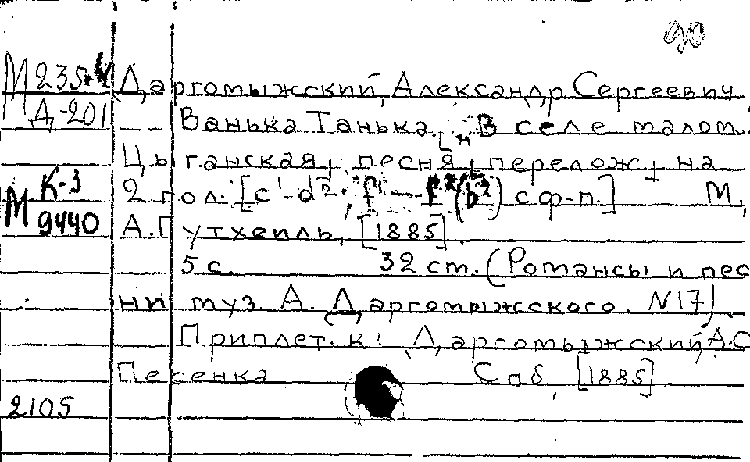 90
М 235
Д-201
Даргомыжский, Александр Сергеевич.
Ванька Танька. В селе малом.
Цыганская песня, перелож. на
К-3
М 9440
2 гол. [c'-d²; f'—f²(b²) с ф-п.] М,
А. Гутхейль, [1885].
5 с. 32 cm. (Романсы и пес
ни муз. А. Даргомыжского. N17)
Приплет. к: Даргомыжский, А.С
Песенка Спб, [1885]
2105